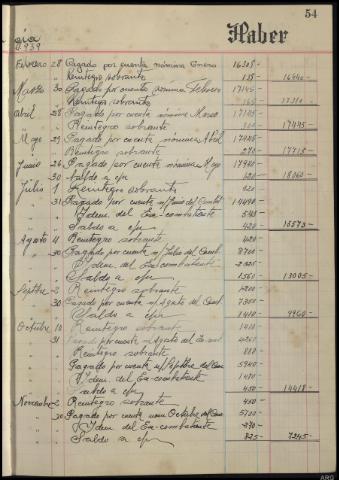 54
Haber
1.939
Febrero 28 Pagado por cuenta nómina Enero 16305-
" " Reintegro sobrante 135- 16440-
Marzo 30 Pagado por cuenta nómina Febrero 17145-
" " Reintegro sobrante 165- 17310-
Abril 28 Pagado por cuenta nómina Marzo
" " Reintegro sobrante 17445-
Mayo 27 Pagado por cuenta nómina Abril
" " Reintegro sobrante 270 17715-
Junio 26 Pagado por cuenta nómina Mayo 17940-
" 30 Saldo a c/n 120 18060-
Julio 1 Reintegro sobrante 120
" 31 Pagado por cuenta n/ Junio del Combat 14490-
" " Idem. del Ex-combatiente
" " Saldo a c/n 420 15573-
Agosto 4 Reintegro sobrante 420-
" 30 Pagado por cuenta n/ Julio del Comb. 8700-
" " Idem del Ex-combatiente
" " Saldo a c/n 1560 13005-
Septbre 2 Reintegro sobrante
" 30 Pagado por cuenta n/ Agosto del Comt 7350-
" " Saldo a c/n 1410 9960-
Octubre 10 Reintegro sobrante 1410-
" 31 Pagado por cuenta n/ Agosto del
" " Reintegro sobrante
" " Pagado por cuenta n/ Septbre del Com
" " Idem. del Ex-combatiente
" " Saldo a c/n 450 14418-
Novembre 2 Reintegro sobrante 450-
" 30 Pagado por cuenta nom Octubre del Com 5700-
" " Idem del Ex-combatiente
" " Saldo a c/n 7245-
ARG